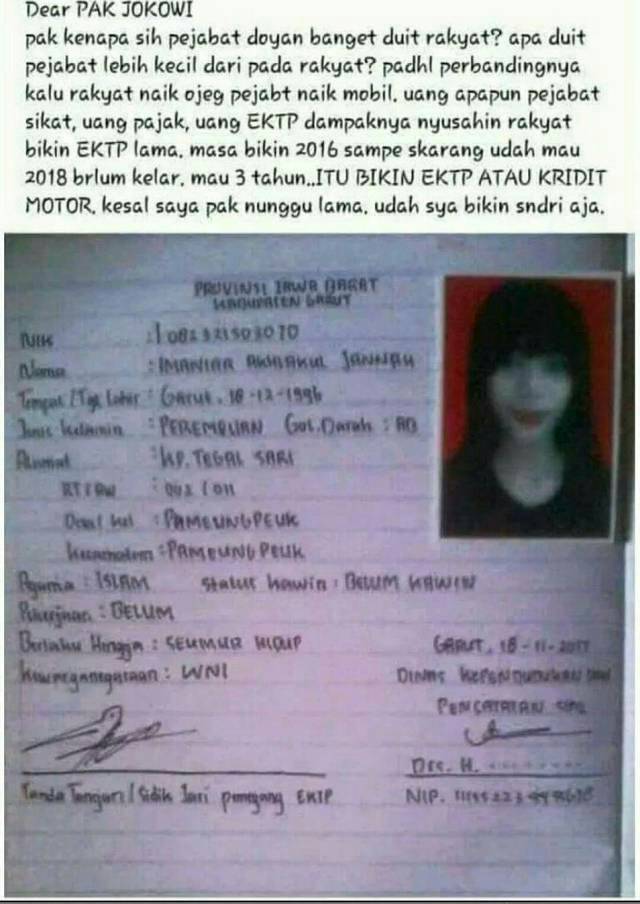 Dear PAK JOKOWI
pak kenapa sih pejabat doyan banget duit rakyat? apa duit
pejabat lebih kecil dari pada rakyat? padhl perbandingnya
kalu rakyat naik ojeg pejabt naik mobil. uang apapun pejabat
sikat, uang pajak, uang EKTP dampaknya nyusahin rakyat
bikin EKTP lama. masa bikin 2016 sampe skarang udah mau
2018 brlum kelar. mau 3 tahun..ITU BIKIN EKTP ATAU KRIDIT
MOTOR. kesal saya pak nunggu lama. udah sya bikin sndri aja.
PROVINSI JAWA BARAT
KABUPATEN GARUT
NIK :
Nama : IMANIAR JANNAH
Tempat / Tgl Lahir : Garut, 18-12-1996
Jenis kelamin : PEREMPUAN Gol.Darah :
Alamat : KP. TEGAL SARI
RT/RW :
: PAMEUNGPEUK
Kecamatan : PAMEUNGPEUK
Agama : ISLAM Status kawin : BELUM KAWIN
Pekerjaan : BELUM
Berlaku Hingga : SEUMUR HIDUP GARUT, 18-11-2017
Kewarganegaraan : WNI DINAS KEPENDUDUKAN DAN
PENCATATAN SIPIL
Drs. H.
Tanda Tangan / Sidik Jari pemegang EKTP NIP.